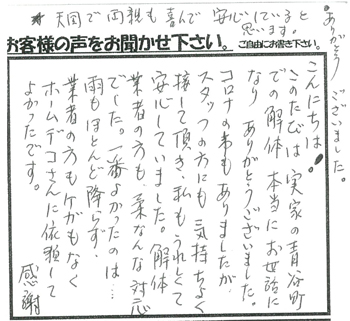 ありがとうございました。
*天国で両親も喜んで安心していると
思います。
お客様の声をお聞かせ下さい。
ご自由にお書き下さい。
こんにちは!
このたびは実家の青谷町
での解体 本当にお世話に
なり ありがとうございました。
コロナの事もありましたが、
スタッフの方にも気持ちよく
接して頂き、私もうれしくて
安心していました。解体
業者の方も、柔なんな対応
でした。一番よかったのは…
雨もほとんど降らず、
業者の方もケガもなく
ホームデコさんに依頼して
よかったです。
感謝